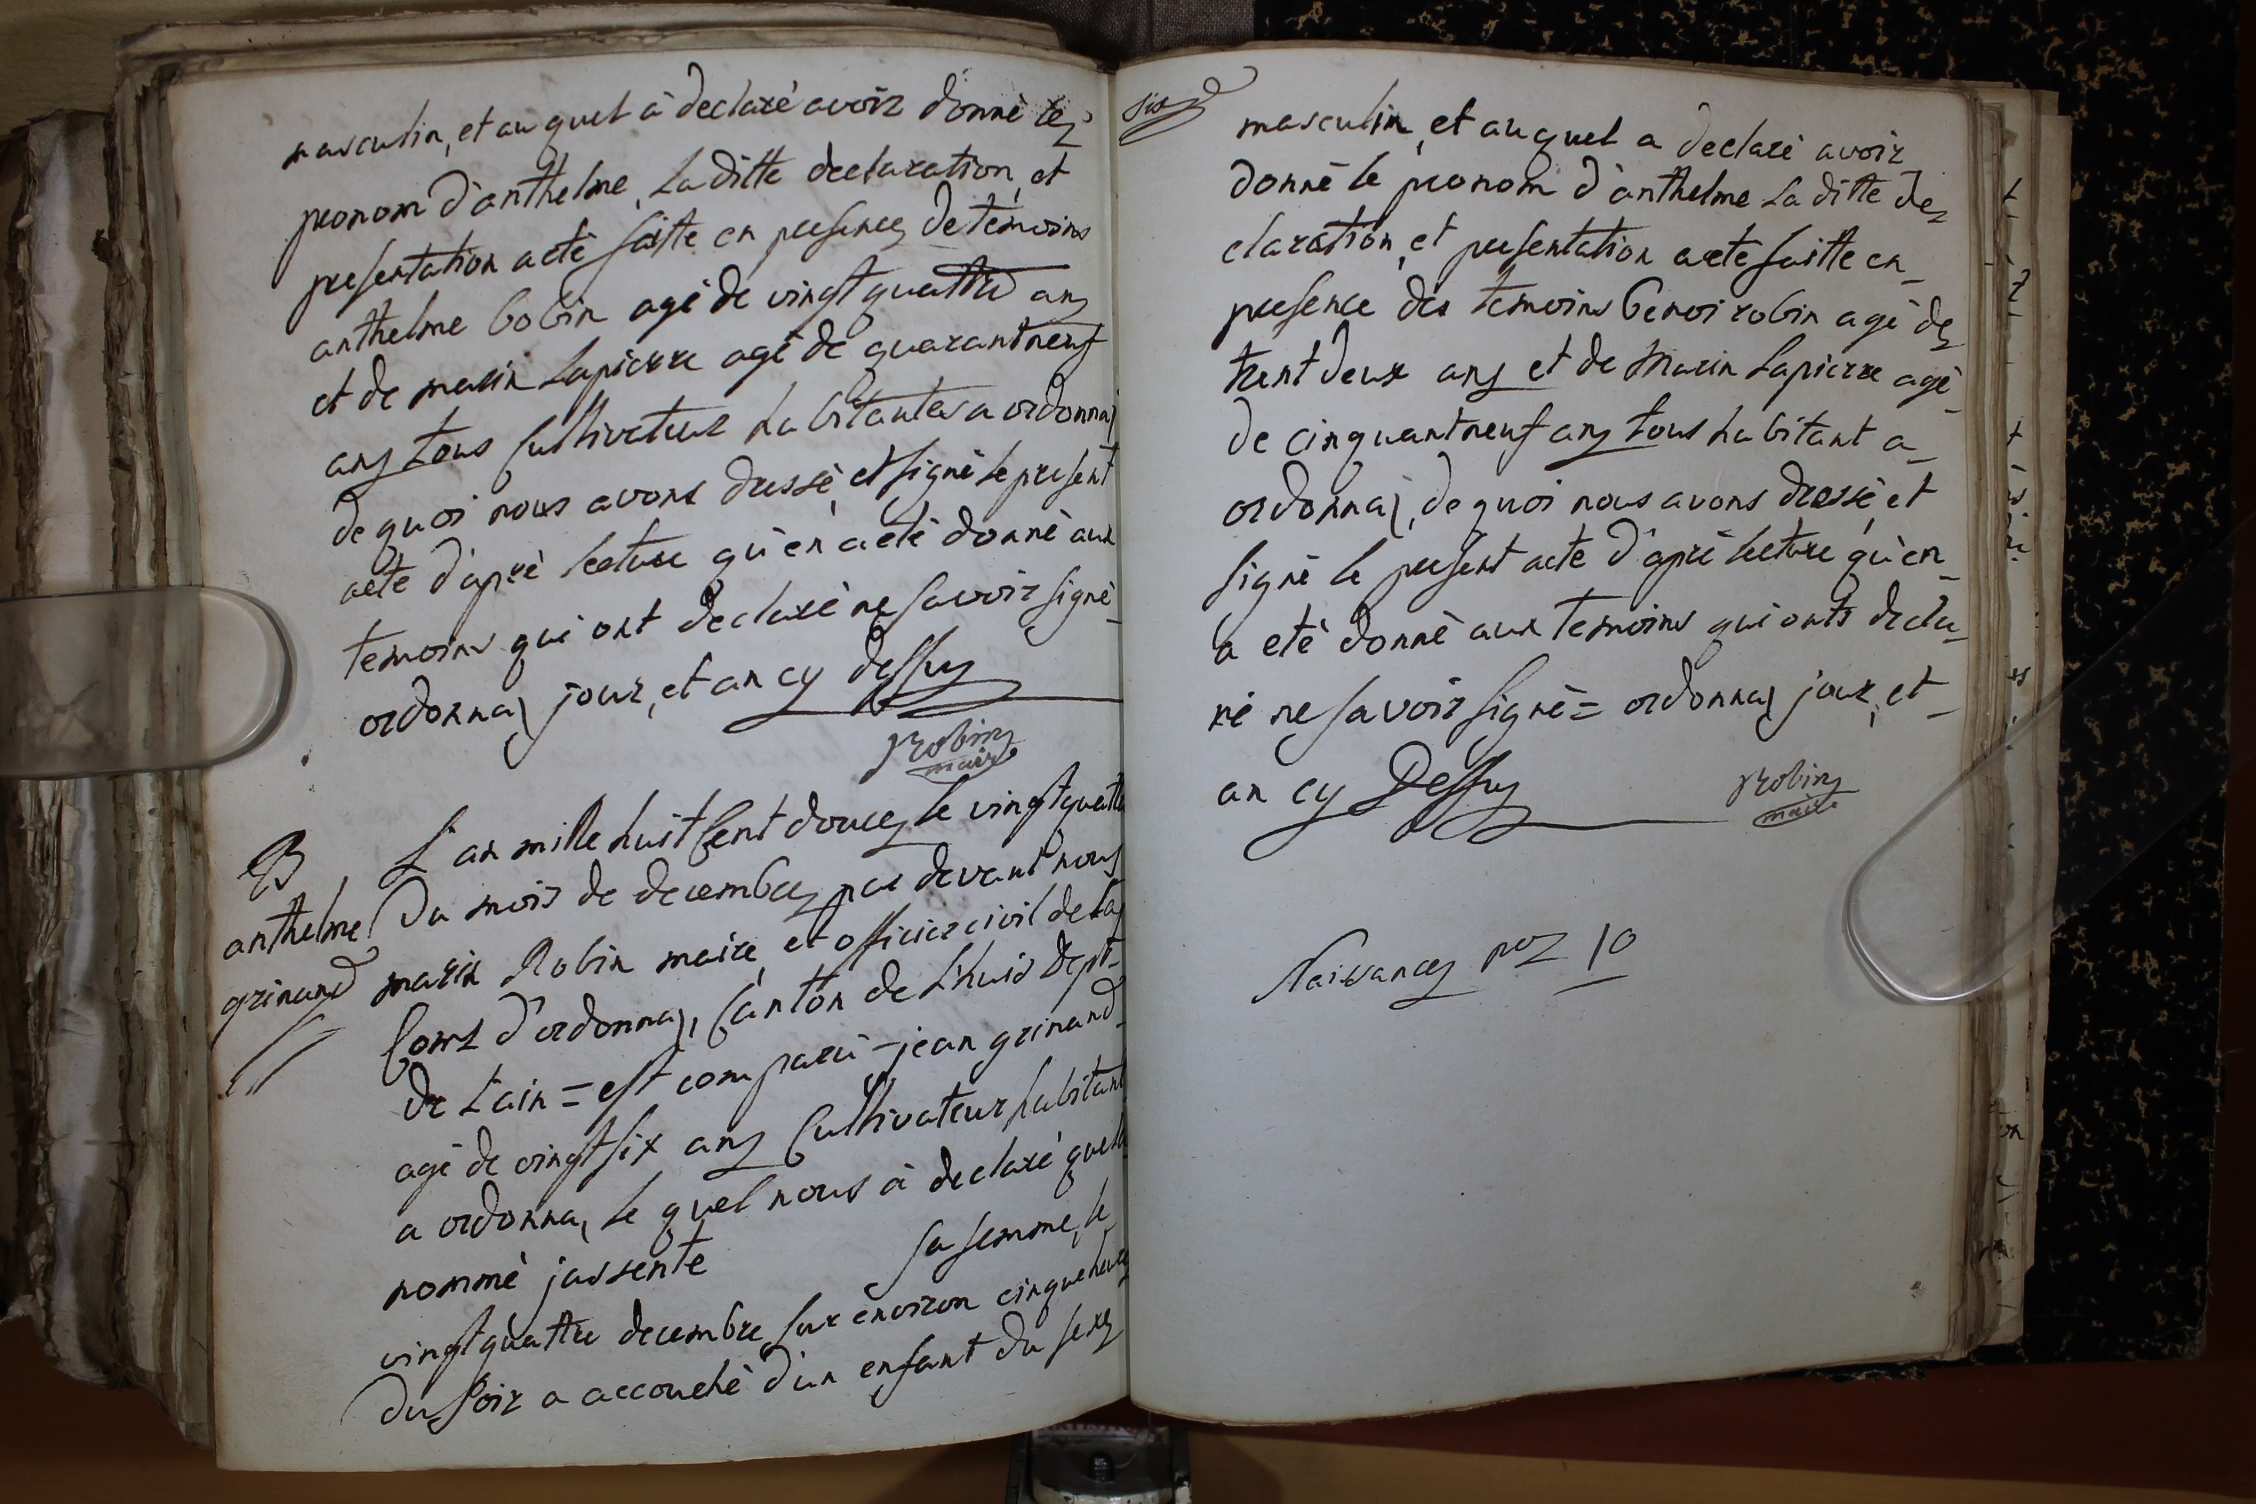 masculin, et auquel à declaré avoir donné le
pronom d'anthelme, Laditte declaration, et
presentation aeté faitte en presence de temoins
anthelme bobin agé de vingt quattre ans
et de marin Lapierre agé de quarantneuf
ans tous Cultivateur habitantes a ordonnas
de quoi nous avons dressé, et signé le present
acte d'apré lecture qu'en aeté donné aux
temoins qui ont declaré ne savoir signé
ordonnas jour, et an cy dessus
Robin
maire
B
anthelme
grinand
L'an mille huit Cent douce, le vingt quattre
Du mois de decembre par devant nous
marin Robin maire, et officier civil de la
Com d'ordonnas, Canton de Lhuis dept
de Lain = est comparu - jean grinand
agé de vingt six ans Cultivateur habitant
a ordonna, le quel nous à declaré que la
nommé jassente sa femme, le
vingt quattre decembre, sur environ cinque heure
du soir a accouché d'un enfant du sexe
six
masculin, et auquel a declaré avoir
donné le pronom d'anthelme La ditte de
claration, et presentation aeté faitte en
presence des temoins benoi robin agé de
trent deux ans et de Marin Lapierre agé
de cinquantneuf ans tous habitant a
ordonnas, de quoi nous avons dressé, et
signé le present acte d'apré lecture qu'en
a eté donné aux temoins qui onts decla
ré ne savoir signé = ordonnas jour, et
an cy Dessus
Robin
maire
Naissances 10